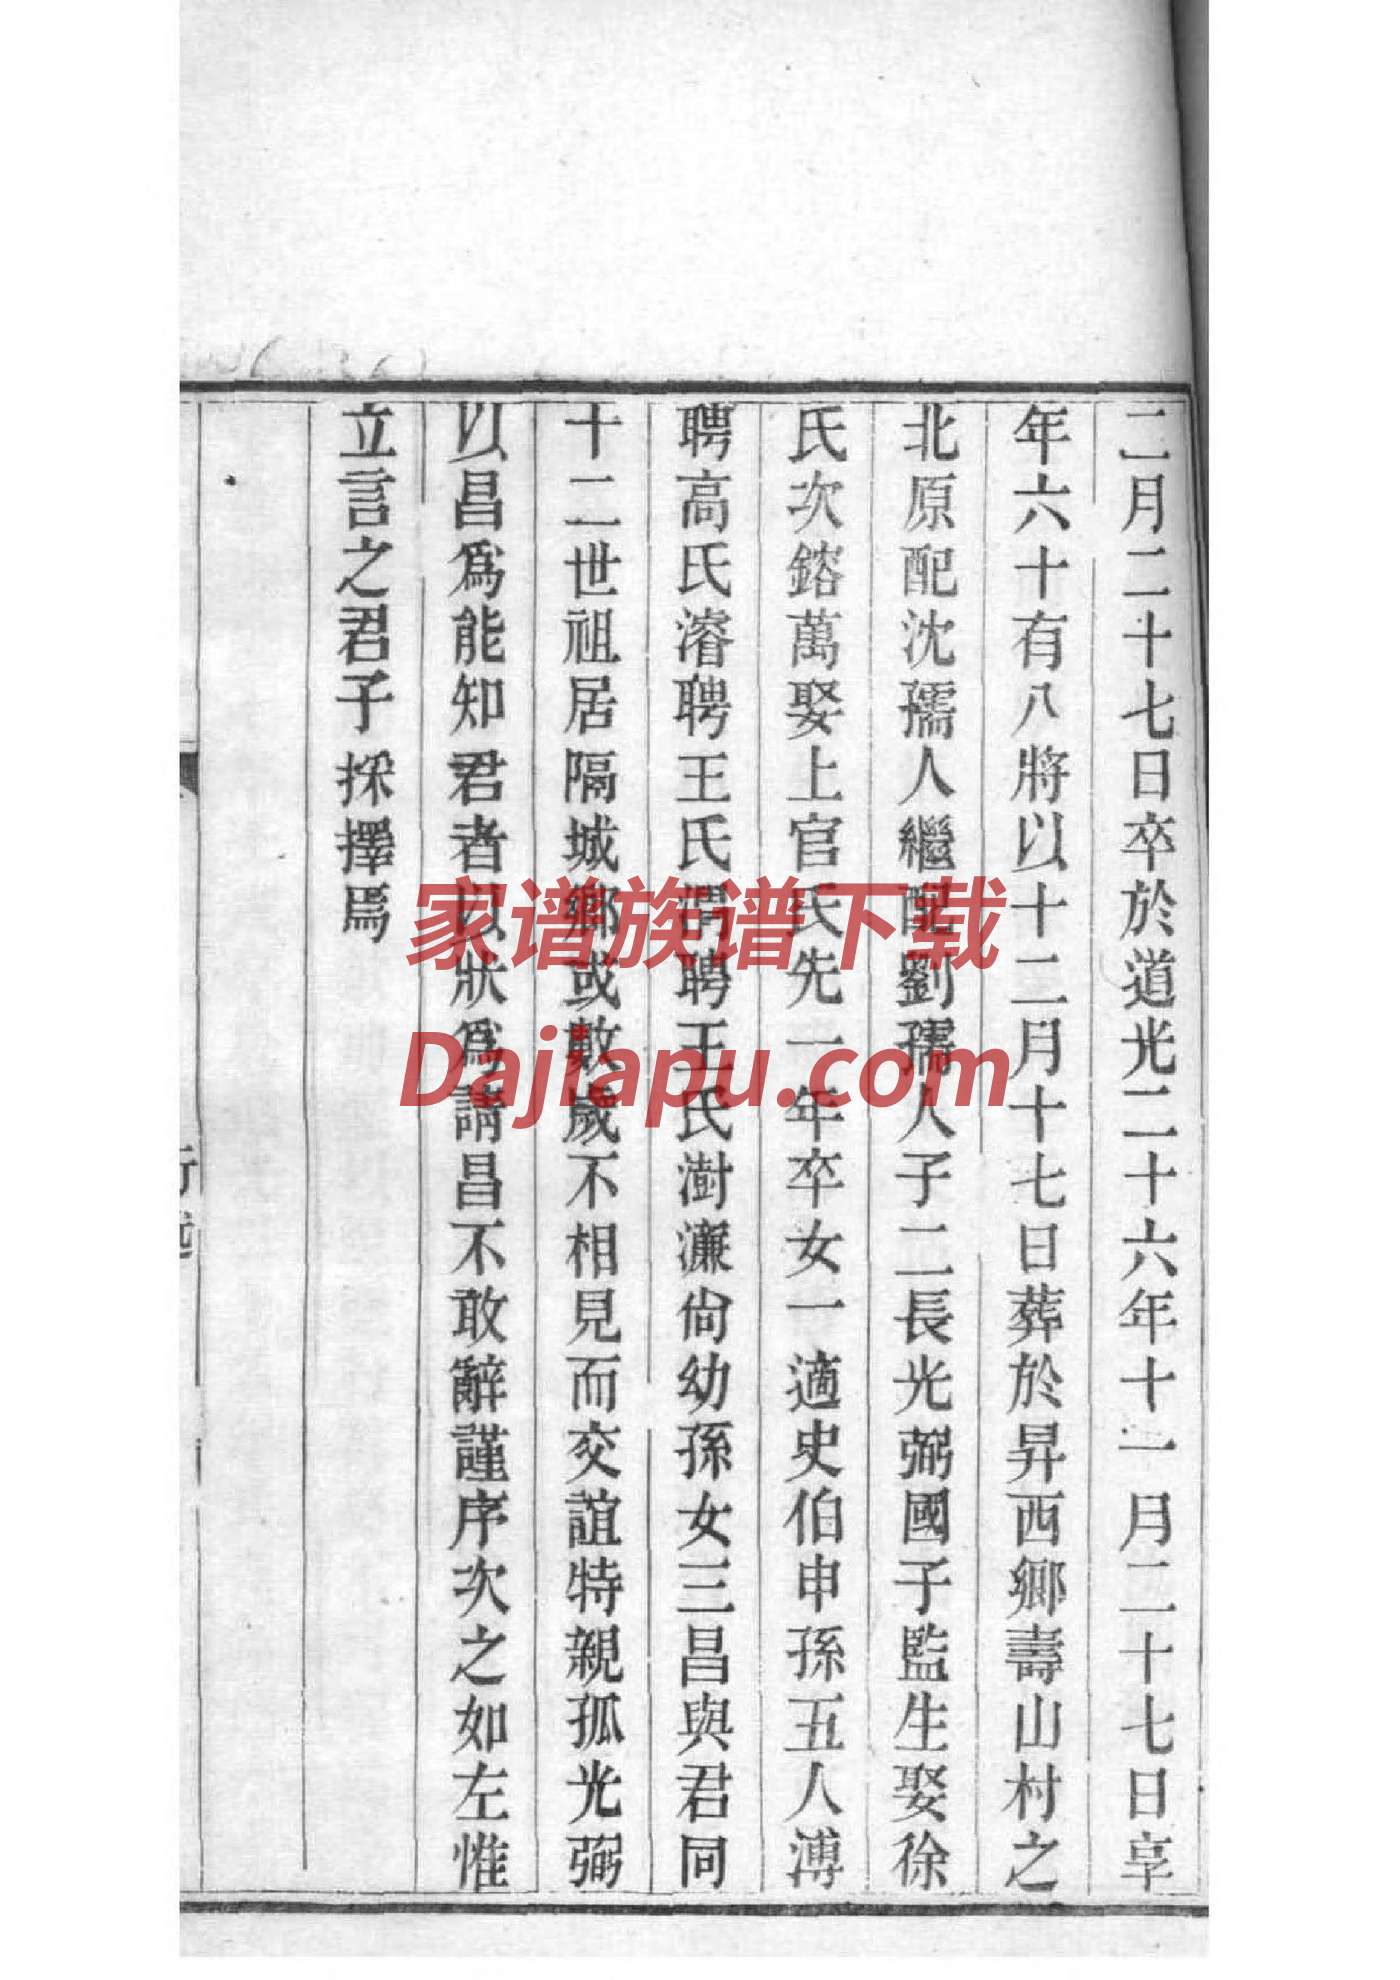 二月二十七日卒於道光二十六年十一月二十七日享
年六十有八將以十二月十七日葬於昇西鄉壽山村之
北原配沈孺人繼配劉孺人子二長光弼國子監生娶徐
氏次鎔萬娶上官氏先一年卒女一適史伯申孫五人溥
聘高氏濬聘王氏 聘王氏澍濂尙幼孫女三昌與君同
十二世祖居隔城鄉或數歲不相見而交誼特親孤光弼
以昌爲能知君者以狀爲請昌不敢辭謹序次之如左惟
立言之君子採擇焉
行述
家谱族谱下载
Dajiapu.com